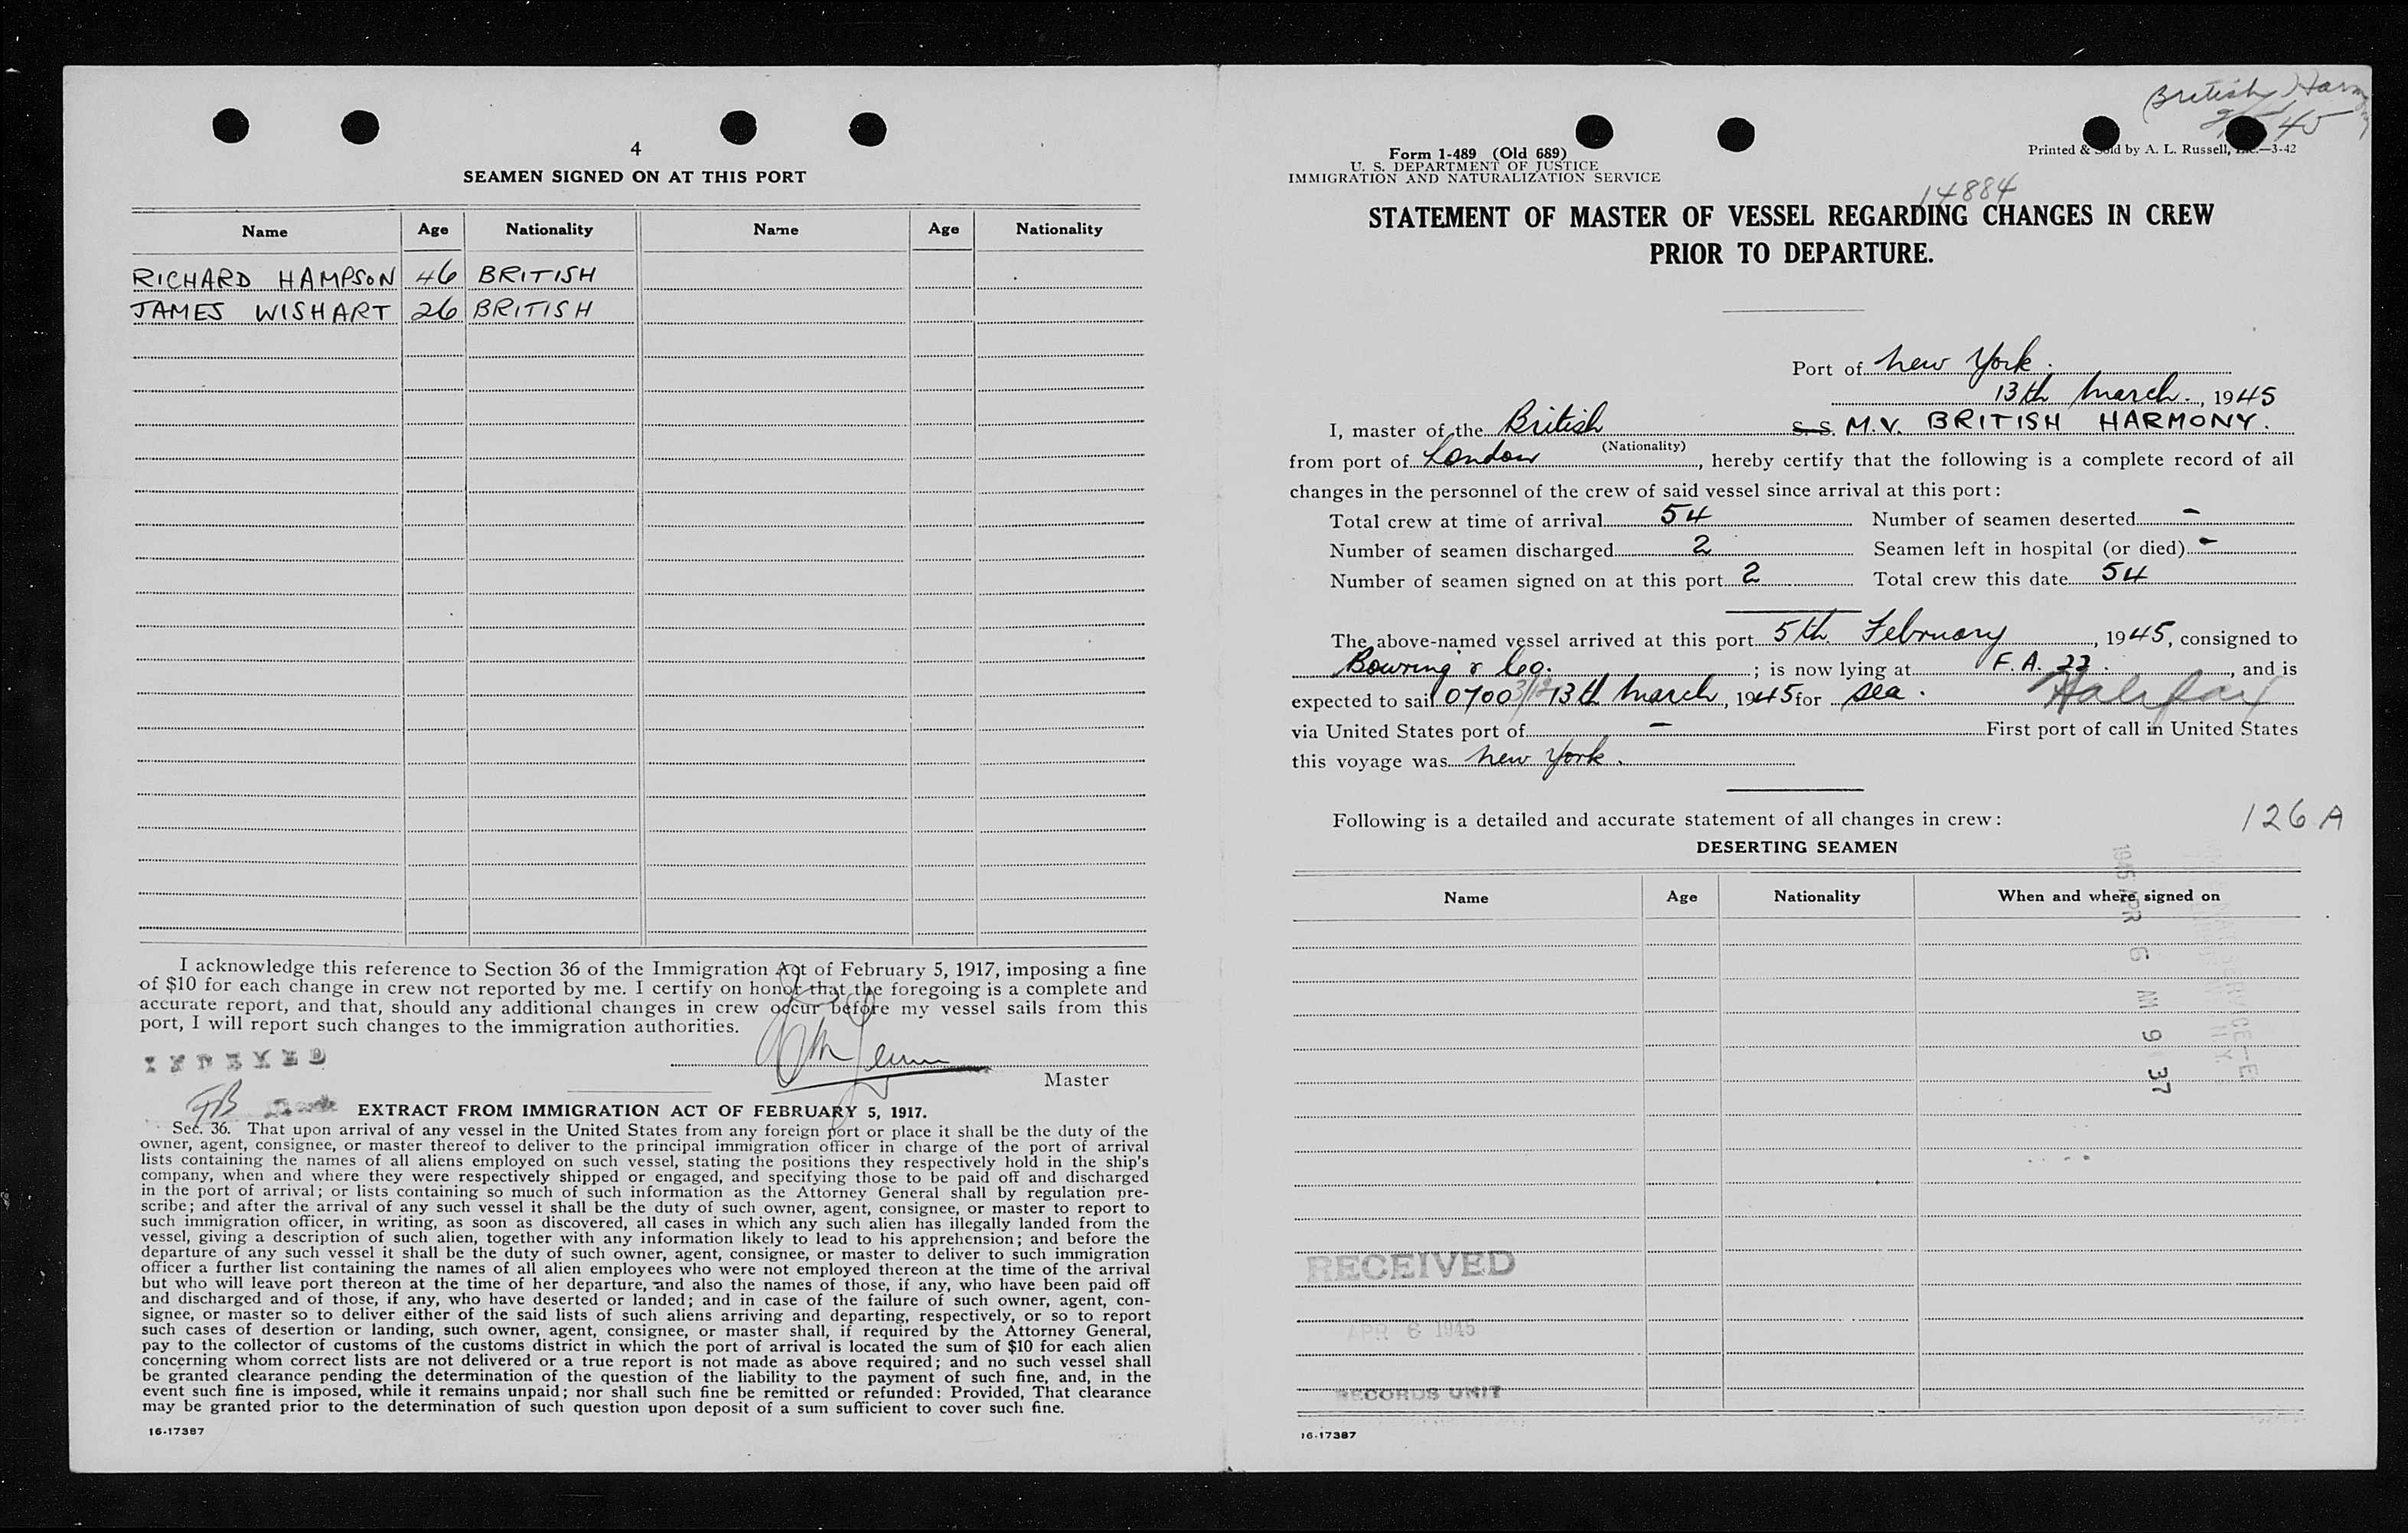 4
SEAMEN SIGNED ON AT THIS PORT
Name Age Nationality Name Age Nationality
RICHARD HAMPSON 46 BRITISH
JAMES WISHART 26 BRITISH
I acknowledge this reference to Section 36 of the Immigration Act of February 5, 1917, imposing a fine
of $10 for each change in crew not reported by me. I certify on honor that the foregoing is a complete and
accurate report, and that, should any additional changes in crew occur before my vessel sails from this
port, I will report such changes to the immigration authorities.
INDEXED
Master
FB
EXTRACT FROM IMMIGRATION ACT OF FEBRUARY 5, 1917.
Sec. 36. That upon arrival of any vessel in the United States from any foreign port or place it shall be the duty of the
owner, agent, consignee, or master thereof to deliver to the principal immigration officer in charge of the port of arrival
lists containing the names of all aliens employed on such vessel, stating the positions they respectively hold in the ship's
company, when and where they were respectively shipped or engaged, and specifying those to be paid off and discharged
in the port of arrival; or lists containing so much of such information as the Attorney General shall by regulation pre-
scribe; and after the arrival of any such vessel it shall be the duty of such owner, agent, consignee, or master to report to
such immigration officer, in writing, as soon as discovered, all cases in which any such alien has illegally landed from the
vessel, giving a description of such alien, together with any information likely to lead to his apprehension; and before the
departure of any such vessel it shall be the duty of such owner, agent, consignee, or master to deliver to such immigration
officer a further list containing the names of all alien employees who were not employed thereon at the time of the arrival
but who will leave port thereon at the time of her departure, and also the names of those, if any, who have been paid off
and discharged and of those, if any, who have deserted or landed; and in case of the failure of such owner, agent, con-
signee, or master so to deliver either of the said lists of such aliens arriving and departing, respectively, or so to report
such cases of desertion or landing, such owner, agent, consignee, or master shall, if required by the Attorney General,
pay to the collector of customs of the customs district in which the port of arrival is located the sum of $10 for each alien
concerning whom correct lists are not delivered or a true report is not made as above required; and no such vessel shall
be granted clearance pending the determination of the question of the liability to the payment of such fine, and, in the
event such fine is imposed, while it remains unpaid; nor shall such fine be remitted or refunded: Provided, That clearance
may be granted prior to the determination of such question upon deposit of a sum sufficient to cover such fine.
16-17387
British Harmony
45
Form 1-489 (Old 689)
U. S. DEPARTMENT OF JUSTICE
IMMIGRATION AND NATURALIZATION SERVICE
Printed & Sold by A. L. Russell, Inc.—3-42
14884
STATEMENT OF MASTER OF VESSEL REGARDING CHANGES IN CREW
PRIOR TO DEPARTURE.
Port of New York.
13th March., 1945
I, master of the British S. S. M.V. BRITISH HARMONY.
(Nationality)
from port of London, hereby certify that the following is a complete record of all
changes in the personnel of the crew of said vessel since arrival at this port:
Total crew at time of arrival 54 Number of seamen deserted -
Number of seamen discharged 2 Seamen left in hospital (or died) -
Number of seamen signed on at this port 2 Total crew this date 54
The above-named vessel arrived at this port 5th February, 1945, consigned to
Bowring & Co.; is now lying at F. A. 22., and is
expected to sail 0700 3/12 13th March, 1945 for sea. Halifax
via United States port of - First port of call in United States
this voyage was New York.
Following is a detailed and accurate statement of all changes in crew:
126 A
DESERTING SEAMEN
Name Age Nationality When and where signed on
1945 APR 6 AM 9 37
RECEIVED
APR 6 1945
RECORDS UNIT
16-17387